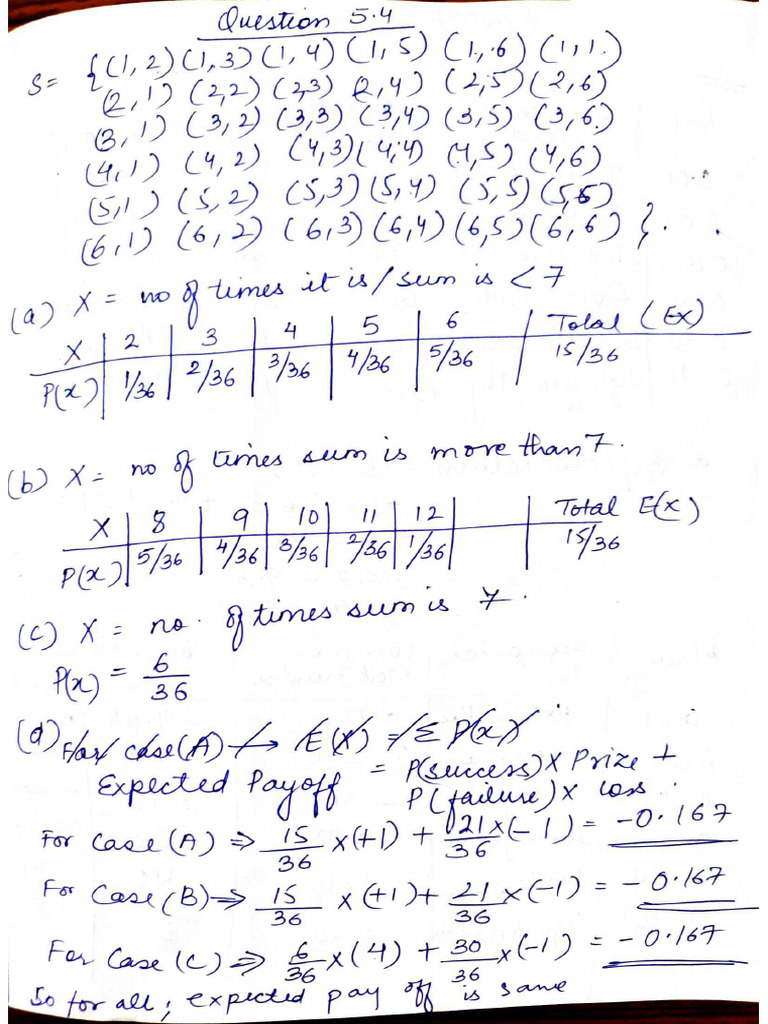 Question 5.4
S= {(1,2) (1,3) (1,4) (1,5) (1,6) (1,1)
(2,1) (2,2) (2,3) (2,4) (2,5) (2,6)
(3,1) (3,2) (3,3) (3,4) (3,5) (3,6)
(4,1) (4,2) (4,3) (4,4) (4,5) (4,6)
(5,1) (5,2) (5,3) (5,4) (5,5) (5,6)
(6,1) (6,2) (6,3) (6,4) (6,5) (6,6) }.
(a) X = no of times it is / sum is < 7
X | 2 | 3 | 4 | 5 | 6 | Total (EX)
P(x) | 1/36 | 2/36 | 3/36 | 4/36 | 5/36 | 15/36
(b) X = no of times sum is more than 7.
X | 8 | 9 | 10 | 11 | 12 | | Total E(x)
P(x) | 5/36 | 4/36 | 3/36 | 2/36 | 1/36 | | 15/36
(c) X = no. of times sum is 7.
P(x) = 6/36
(d) For case (A) → E(X) = Σ P(x)
Expected Payoff = P(success) X Prize +
P(failure) X loss.
For Case (A) ⇒ 15/36 x (+1) + 21/36 x (-1) = -0.167
For Case (B) ⇒ 15/36 x (+1) + 21/36 x (-1) = -0.167
For Case (C) ⇒ 6/36 x (4) + 30/36 x (-1) = -0.167
So for all; expected pay off is same